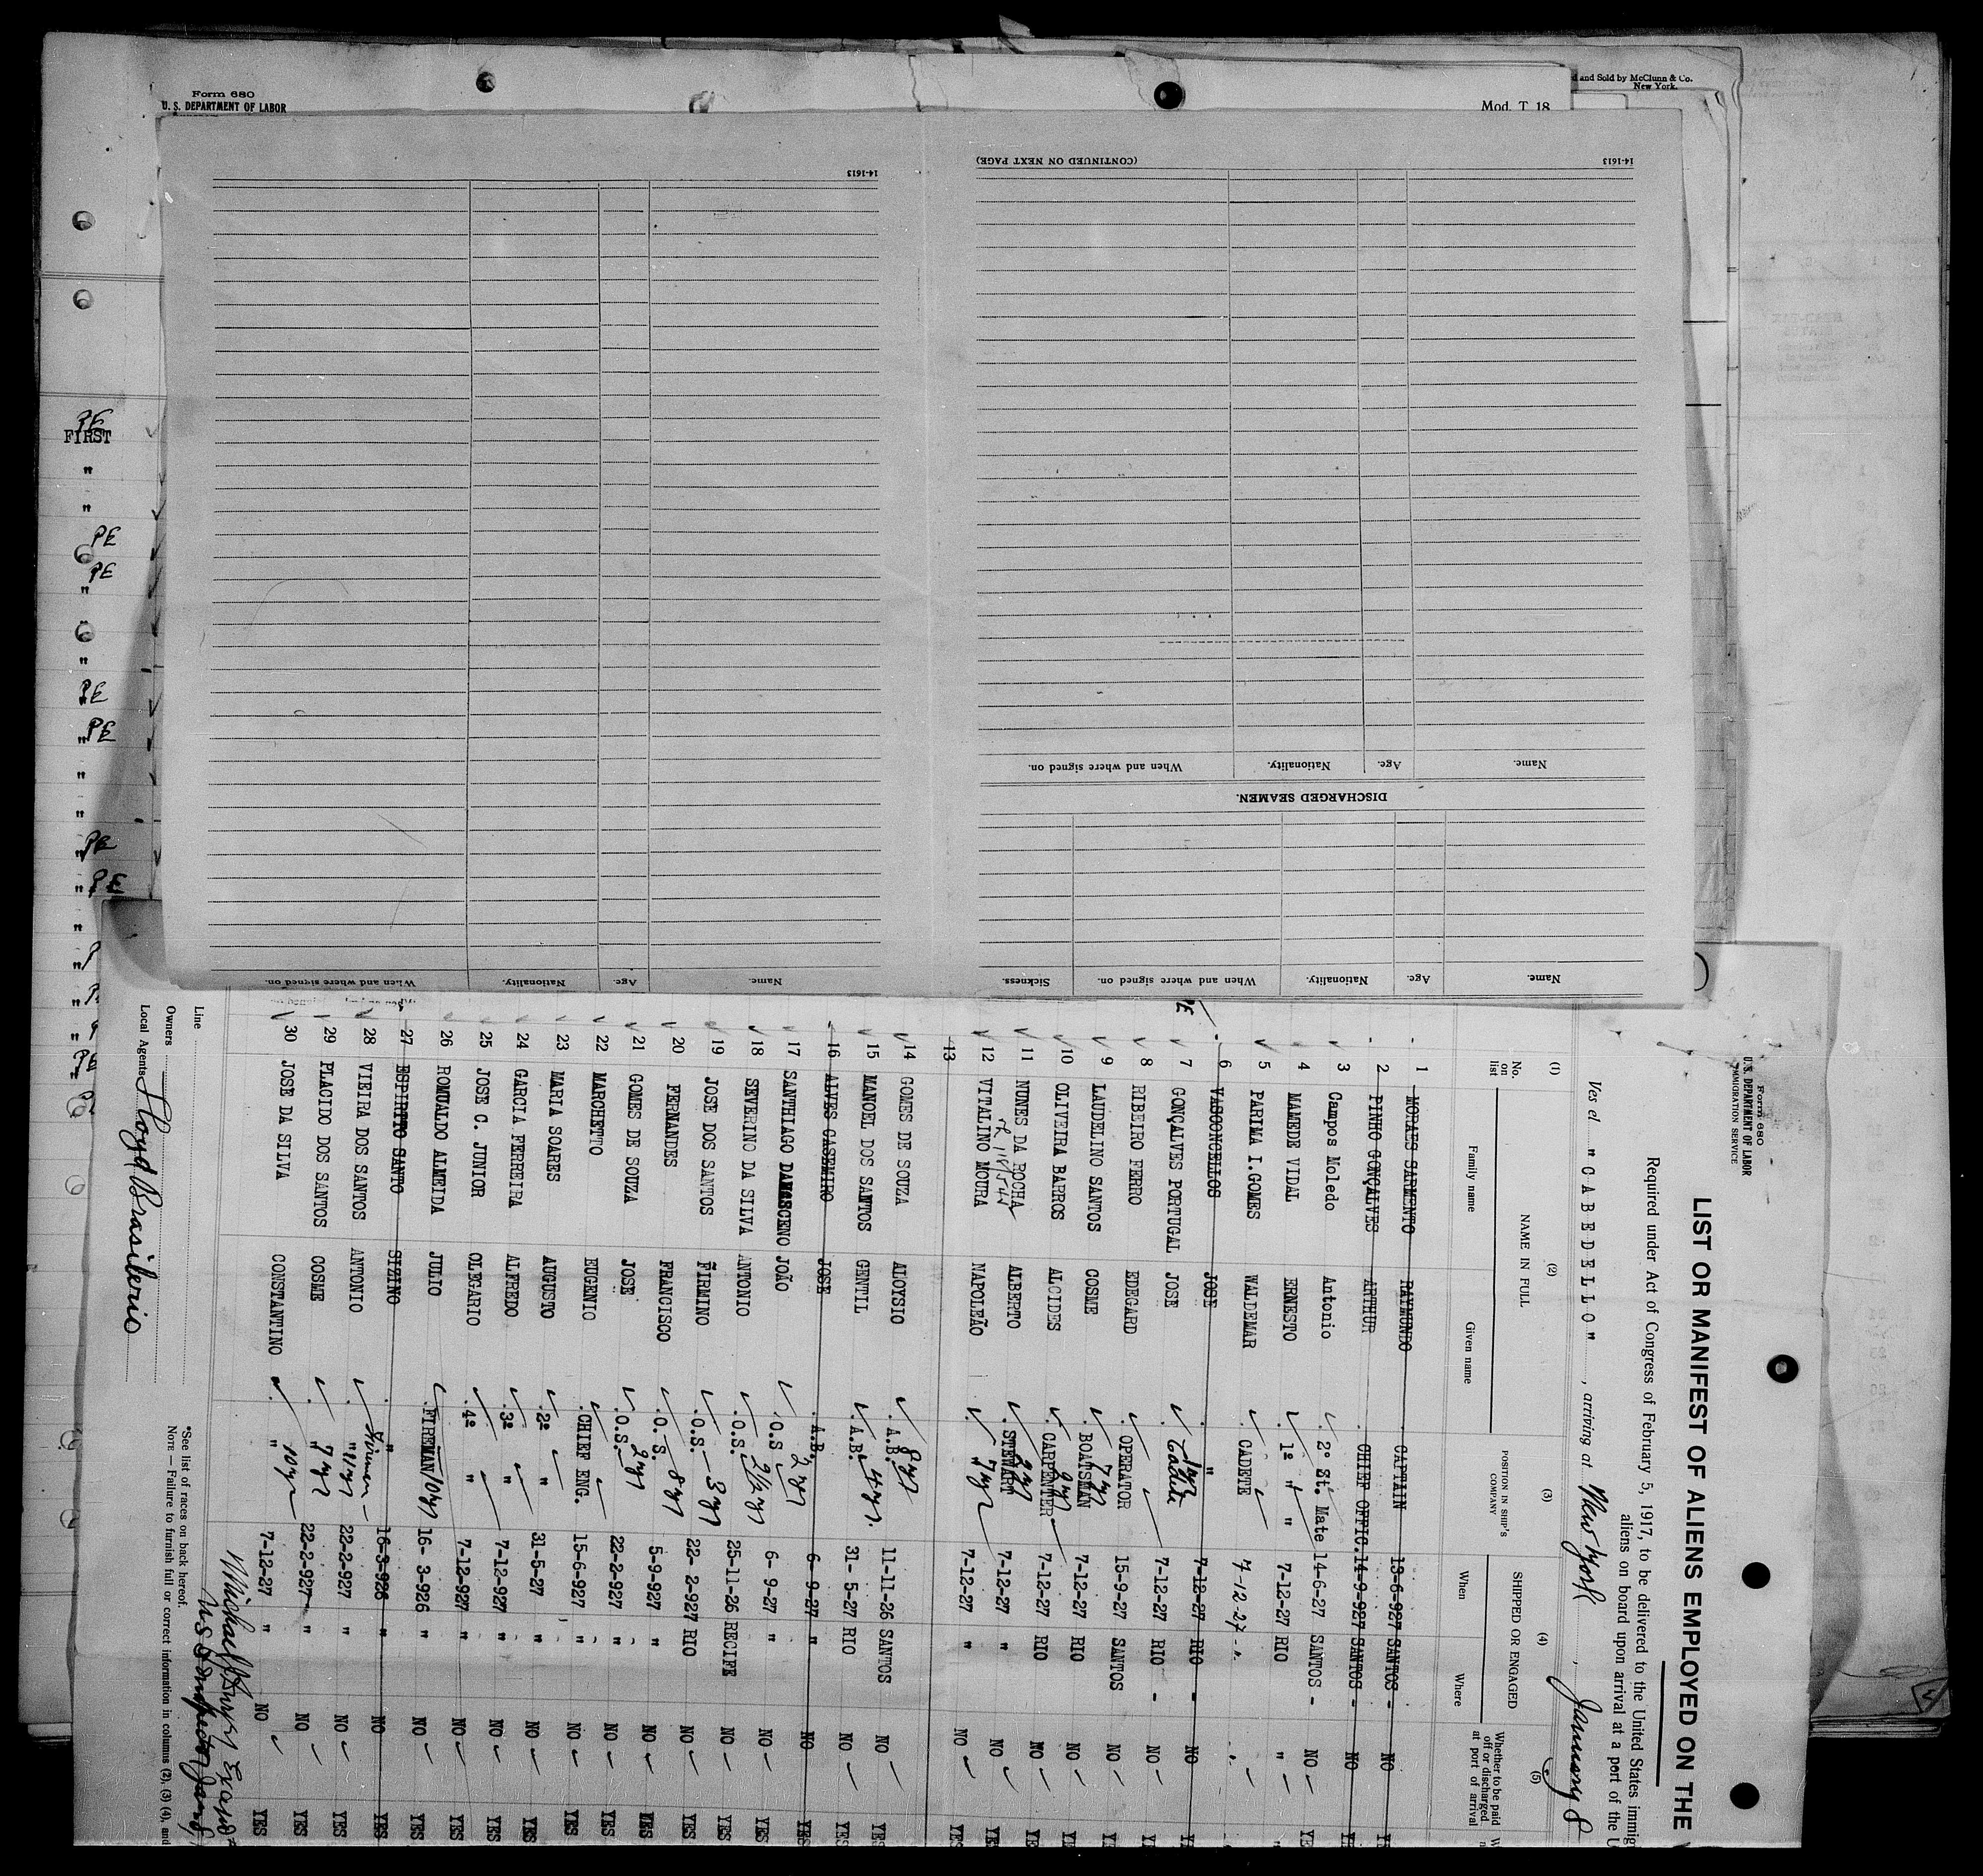 Form 680
U. S. DEPARTMENT OF LABOR
Mod. T. 18
and Sold by McClunn & Co.
New York.
14-1613
(CONTINUED ON NEXT PAGE)
14-1613
Name.
Age.
Nationality.
When and where signed on.
DISCHARGED SEAMEN.
Name.
Age.
Nationality.
When and where signed on.
Sickness.
Name.
Age.
Nationality.
When and where signed on.
PE
FIRST
"
"
PE
PE
"
"
"
PE
" PE
"
"
" PE
" PE
"
Form 680
U.S. DEPARTMENT OF LABOR
IMMIGRATION SERVICE
LIST OR MANIFEST OF ALIENS EMPLOYED ON THE
Required under Act of Congress of February 5, 1917, to be delivered to the United States immig
aliens on board upon arrival at a port of the U
Vessel "CABEDELLO", arriving at New York, January 8
(1) (2) (3) (4) (5)
No. on list NAME IN FULL POSITION IN SHIP'S COMPANY SHIPPED OR ENGAGED Whether to be paid off or discharged at port of arrival
Family name Given name When Where
1 MORAES SARMENTO RAYMUNDO CAPTAIN 13-6-927 SANTOS - NO
2 PINHO GONÇALVES ARTHUR CHIEF OFFIC. 14-9-927 SANTOS - NO
3 Campos Moledo Antonio 2º St. Mate 14-6-27 SANTOS - NO YE
4 MAMEDE VIDAL ERNESTO 1º " " 7-12-27 RIO " "
5 PARIMA I.GOMES WALDEMAR CADETE 7-12-27 "
6 VASCONCELLOS JOSE " 7-12-27 RIO - NO
7 GONÇALVES PORTUGAL JOSE Cadete 1 yr 7-12-27 RIO - NO
8 RIBEIRO FERRO EDEGARD OPERATOR 15-9-27 SANTOS NO
9 LAUDELINO SANTOS COSME BOATSMAN 7 yr 7-12-27 RIO NO YE
10 OLIVEIRA BARROS ALCIDES CARPENTER 9 yr 7-12-27 RIO NO YE
11 NUNES DA ROCHA ALBERTO STEWART 2 yr 7-12-27 " NO YES
12 VITALINO MOURA NAPOLEÃO " 7 yr 7-12-27 " NO YES
13
14 GOMES DE SOUZA ALOYSIO A.B. 8 yr 11-11-26 SANTOS NO YES
15 MANOEL DOS SANTOS GENTIL A.B. 4 yr. 31- 5-27 RIO NO YES
16 ALVES CASEMIRO JOSE A.B. 6- 9-27 " NO YES
17 SANTHIAGO DAMASCENO JOÃO O.S 2 yr 6- 9-27 " NO YES
18 SEVERINO DA SILVA ANTONIO O.S. 2½ yr 25-11-26 RECIFE NO YES
19 JOSE DOS SANTOS FIRMINO O.S. 3 yr 22- 2-927 RIO NO YES
20 FERNANDES FRANCISCO O. S. 8 yr 5-9-927 " NO YES
21 GOMES DE SOUZA JOSE O.S. 2 yr 22-2-927 " NO YES
22 MARCHETTO EUGENIO CHIEF ENG. 15-6-927 " NO YES
23 MARIA SOARES AUGUSTO 2º " 31-5-27 " NO YES
24 GARCIA FERREIRA ALFREDO 3º " 7-12-927 " NO YES
25 JOSE C. JUNIOR OLEGARIO 4º " 7-12-927 " NO YES
26 ROMUALDO ALMEIDA JULIO FIREMAN 10 yr 16- 3-926 " NO YES
27 ESPIRTO SANTO SIZINO " 16-3-926 " NO YES
28 VIEIRA DOS SANTOS ANTONIO Firemen " 22-2-927 " NO YES
29 PLACIDO DOS SANTOS COSME " 7 yr 22-2-927 " NO YES
30 JOSE DA SILVA CONSTANTINO " 10 yr 7-12-27 " NO YES
Line
Owners
Local Agents Lloyd Brasileiro
*See list of races on back hereof.
NOTE — Failure to furnish full or correct information in columns (2), (3) (4), and
U.S. Inspector